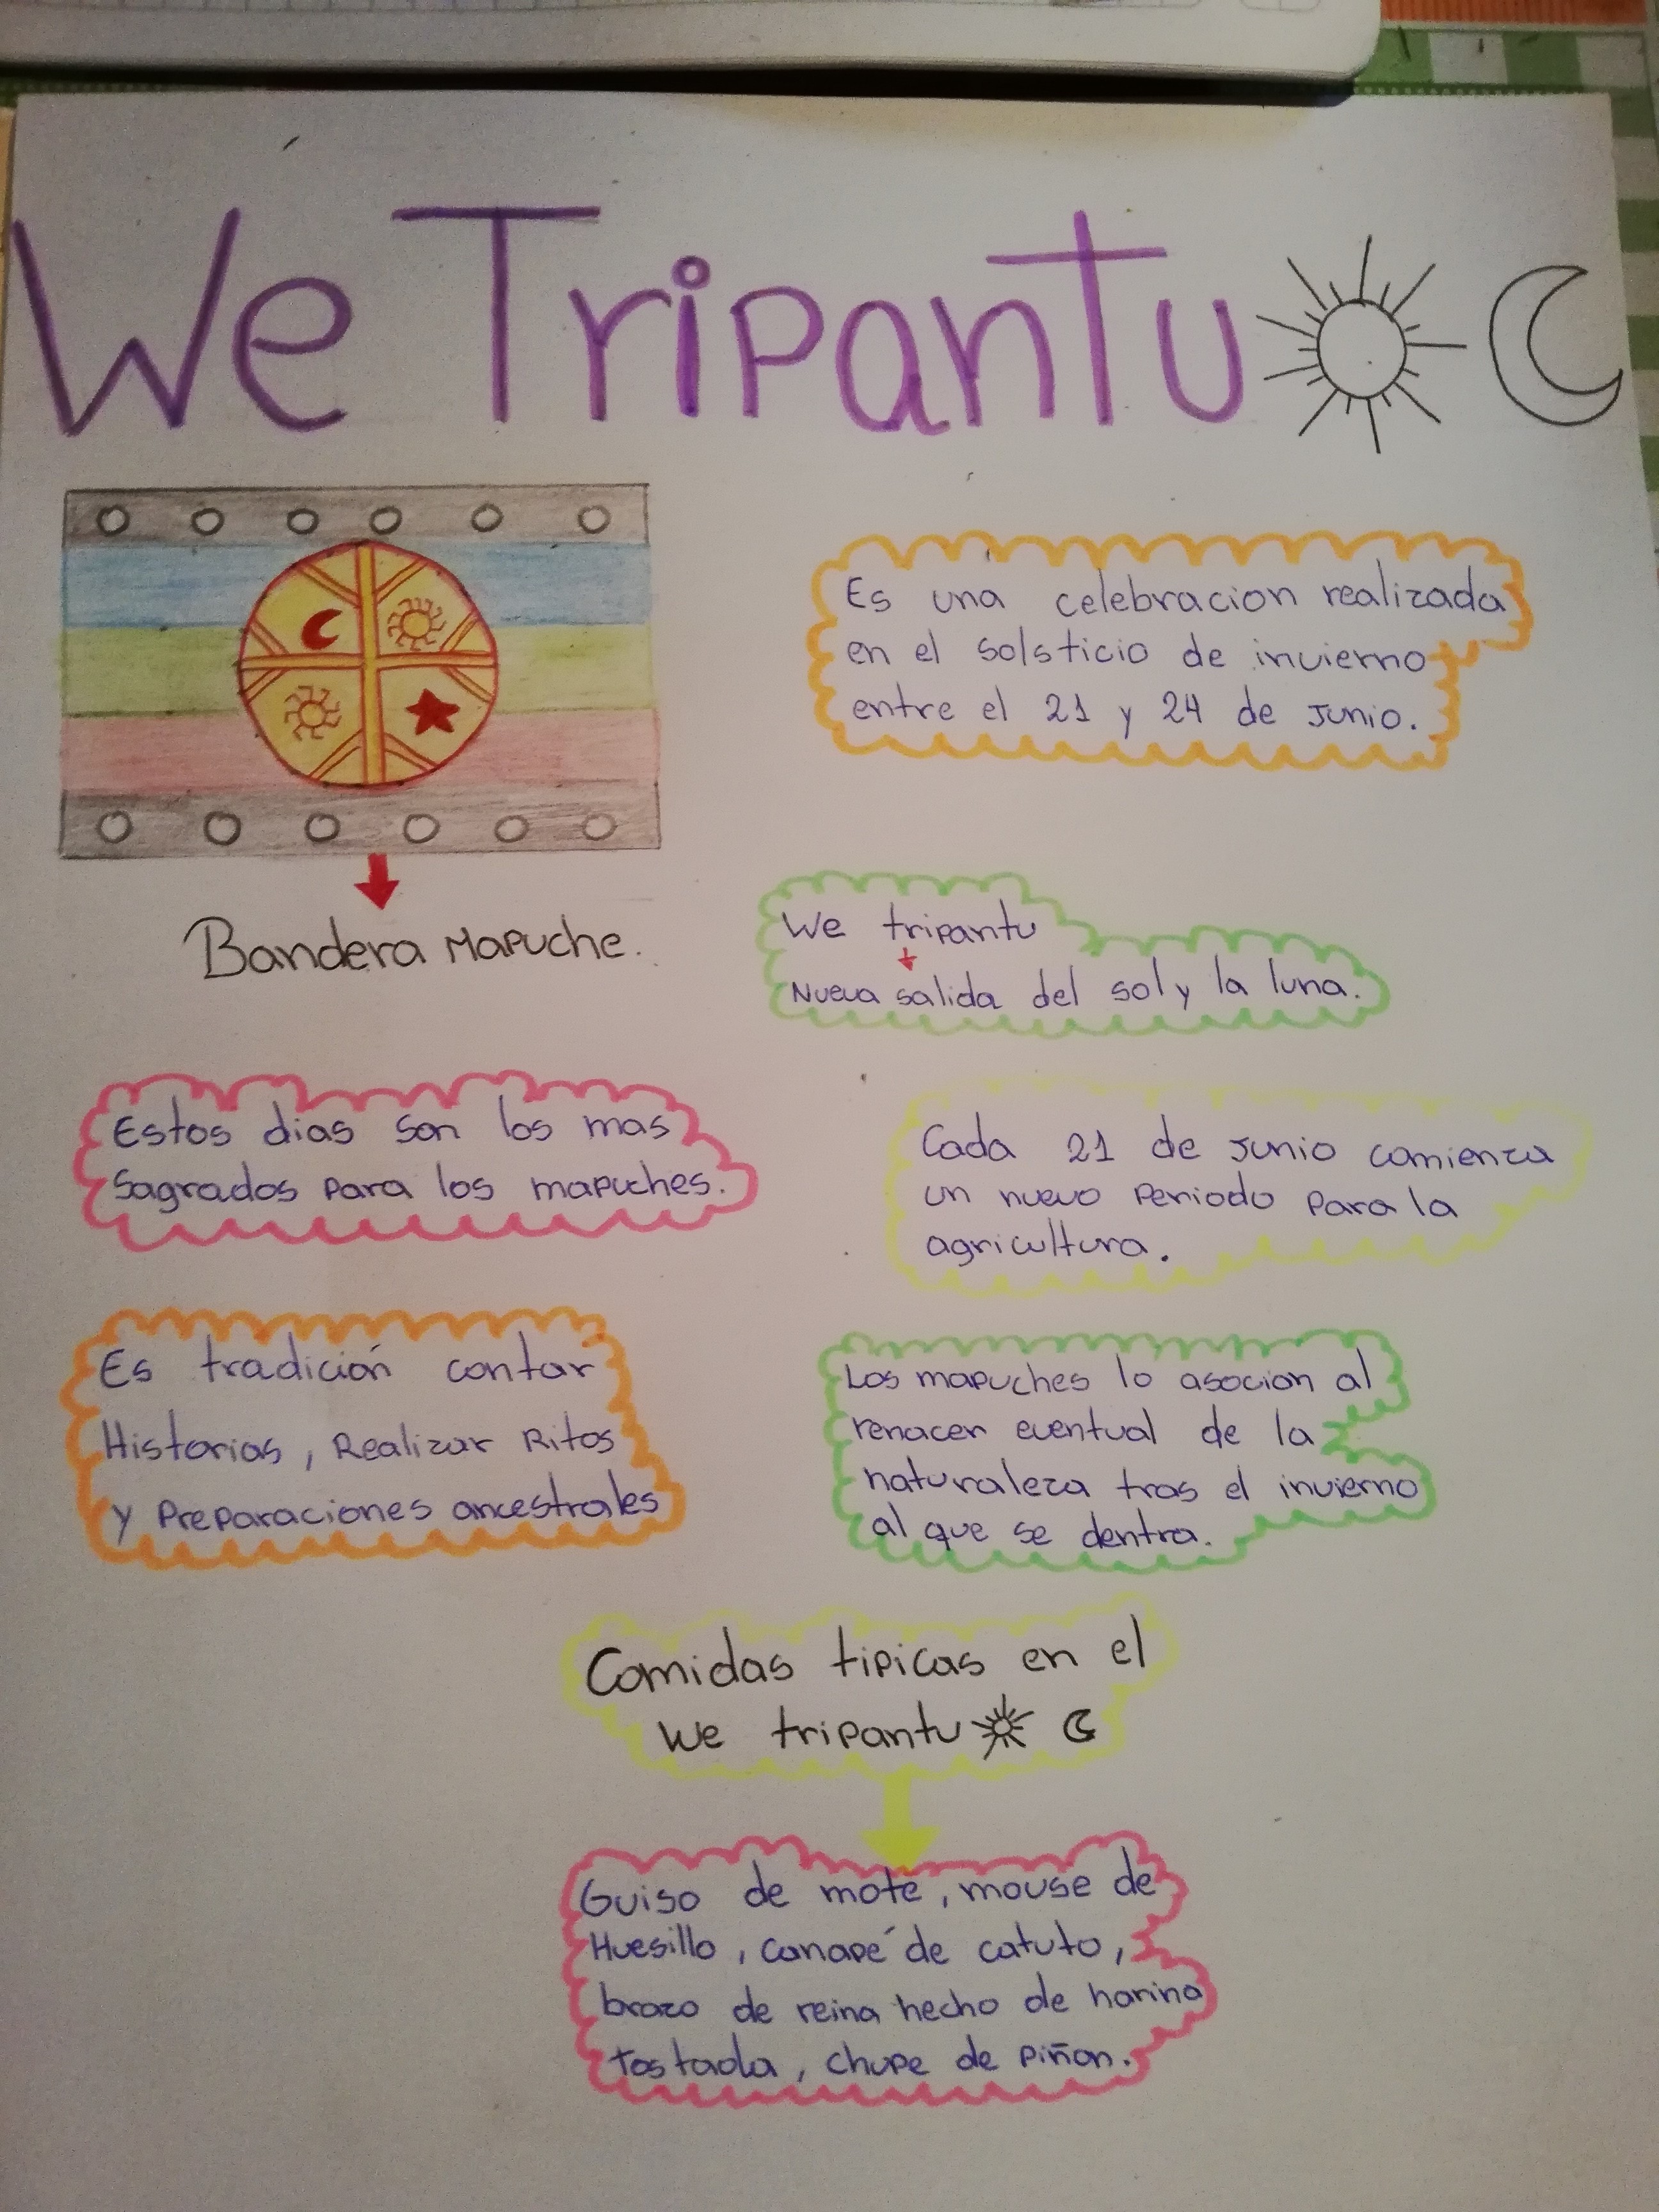 We Tripantu
Bandera Mapuche.
Es una celebracion realizada
en el solsticio de invierno
entre el 21 y 24 de Junio.
We tripantu
Nueva salida del sol y la luna.
Estos dias son los mas
sagrados para los mapuches.
Cada 21 de Junio comienza
un nuevo Periodo para la
agricultura.
Es tradición contar
Historias, Realizar Ritos
y Preparaciones ancestrales
Los mapuches lo asocian al
renacer eventual de la
naturaleza tras el invierno
al que se dentra.
Comidas tipicas en el
We tripantu
Guiso de mote, mouse de
Huesillo, canapé de catuto,
brazo de reina hecho de harina
Tostada, chupe de piñon.